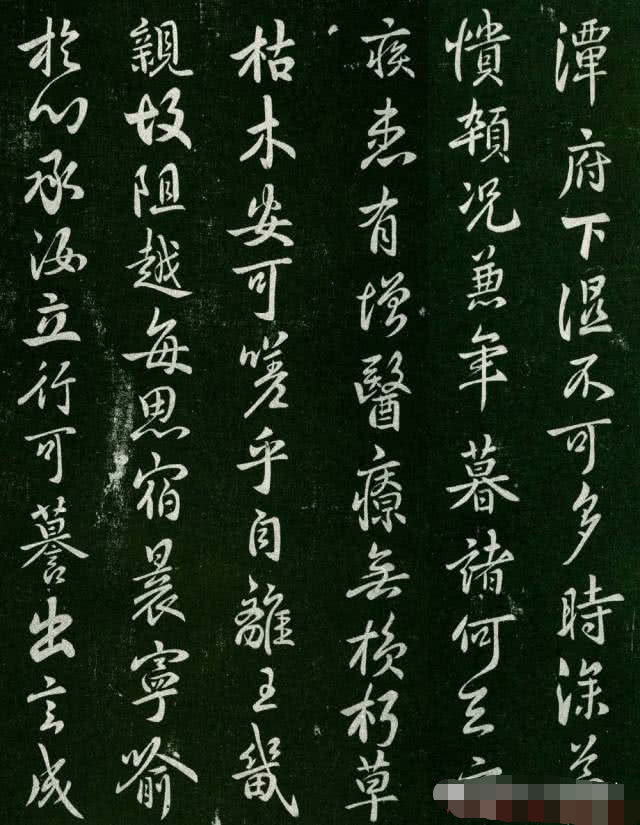 潭府下湿不可多時深益
憒頓况兼年暮諸何
疾患有增醫療無損朽草
枯木安可嗟乎自離王畿
親故阻越每思宿晨寧喻
於心承汝立行可譽出言成